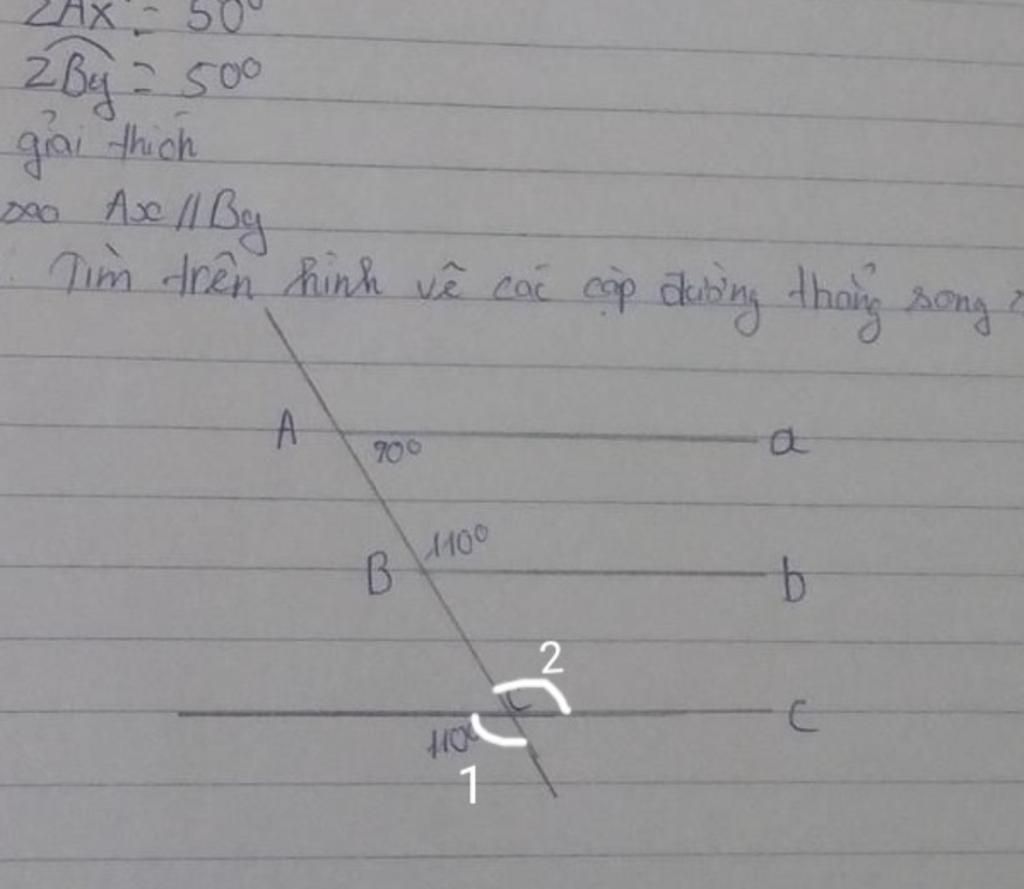 ZAx = 50°
ZBy = 50°
giải thích
sao Ax // By
Tìm trên hình vẽ các cặp đường thẳng song
A 70° a
B 110° b
2
C c
110°
1